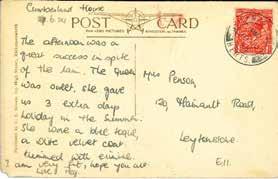 Cumberland House
.6.24
POST CARD
The afternoon was a
great success in spite
of the rain. The Queen
was sweet, she gave
us 3 extra days
holiday in the Summer.
She wore a blue toque,
a blue velvet coat
trimmed with ermine.
I am very fit, hope you are
Love
Mrs Penson,
Hainault Road,
Leytonstone,
E11.
HERTS